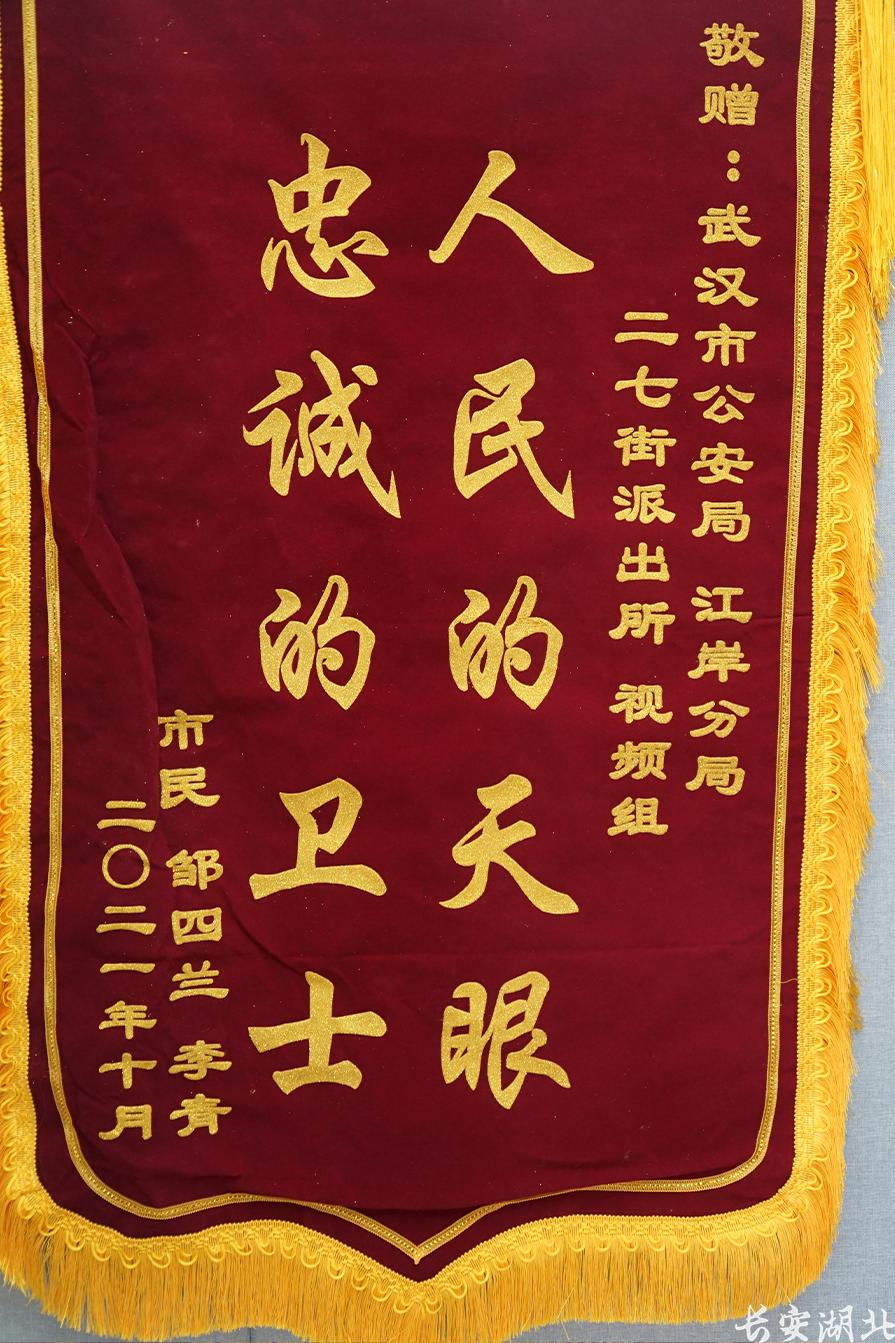 敬赠：武汉市公安局 江岸分局
二七街派出所 视频组
人民的天眼
忠诚的卫士
市民 邹四兰 李青
二〇二一年十月
长安湖北